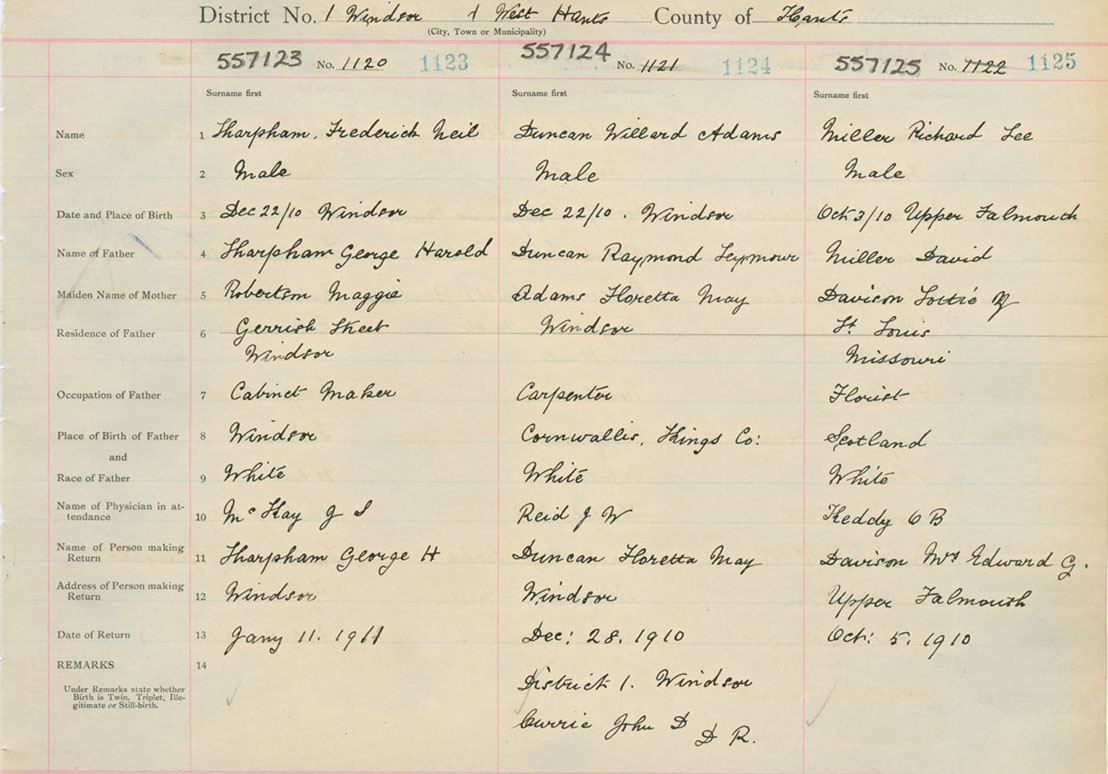 District No. 1 Windsor & West Hants County of Hants
(City, Town or Municipality)
557123 No. 1120 1123 557124 No. 1121 1124 557125 No. 1122 1125
Surname first Surname first Surname first
Name 1 Sharpham, Frederick Neil Duncan Willard Adams Miller Richard Lee
Sex 2 Male Male Male
Date and Place of Birth 3 Dec 22/10 Windsor Dec 22/10. Windsor Oct 3/10 Upper Falmouth
Name of Father 4 Sharpham George Harold Duncan Raymond Seymour Miller David
Maiden Name of Mother 5 Robertson Maggie Adams Floretta May Davison Lottie
Residence of Father 6 Gerrish Street Windsor St. Louis
Windsor Missouri
Occupation of Father 7 Cabinet Maker Carpenter Florist
Place of Birth of Father 8 Windsor Cornwallis, Kings Co: Scotland
and
Race of Father 9 White White White
Name of Physician in at-
tendance 10 Mc Kay Reid J W Keddy O B
Name of Person making
Return 11 Sharpham George H Duncan Floretta May Davison Mrs Edward G.
Address of Person making
Return 12 Windsor Windsor Upper Falmouth
Date of Return 13 Jany 11. 1911 Dec: 28. 1910 Oct: 5. 1910
REMARKS 14
Under Remarks state whether
Birth is Twin, Triplet, Ille-
gitimate or Still-birth.
District 1. Windsor
Currie John D D R.